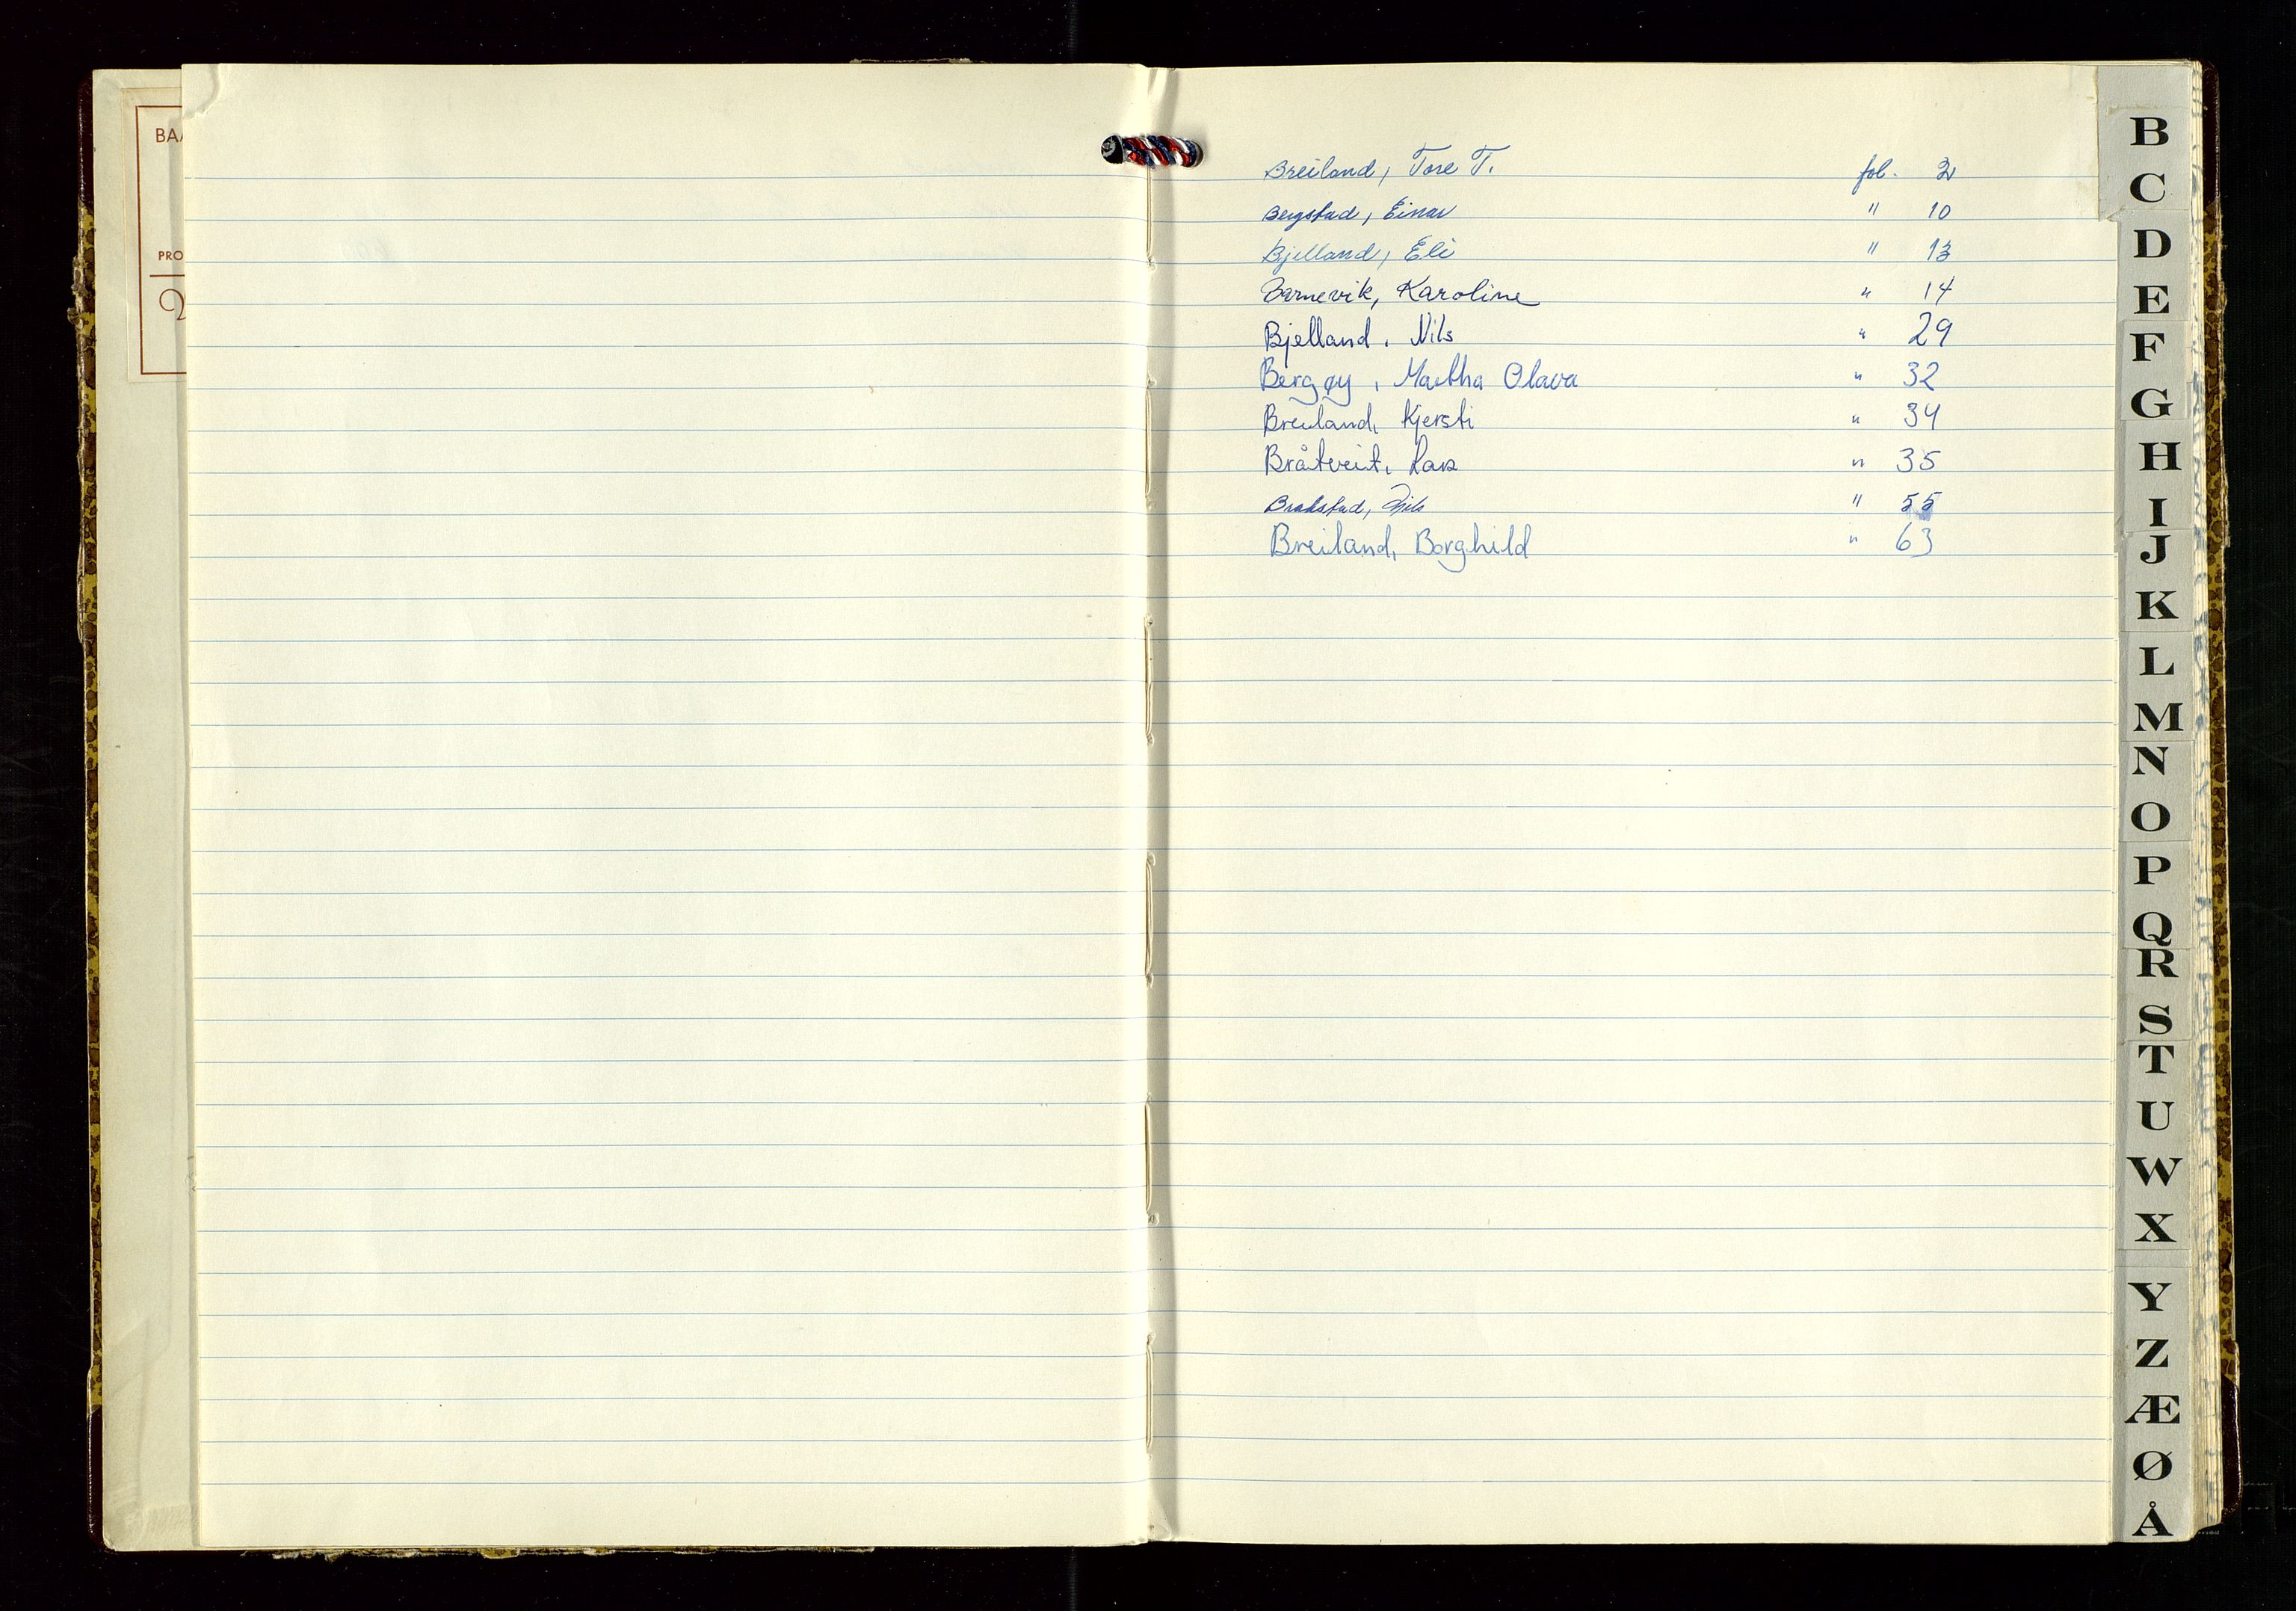 BAA
PRO
Breiland, Tore T. fol. 2
Bergstad, Einar " 10
Bjelland, Eli " 13
Barnevik, Karoline " 14
Bjelland, Nils " 29
Bergøy, Martha Olava " 32
Breiland, Kjersti " 34
Bråtveit, Lars " 35
Brakstad, Nils " 55
Breiland, Borghild " 63
B
C
D
E
F
G
H
I
J
K
L
M
N
O
P
Q
R
S
T
U
W
X
Y
Z
Æ
Ø
Å